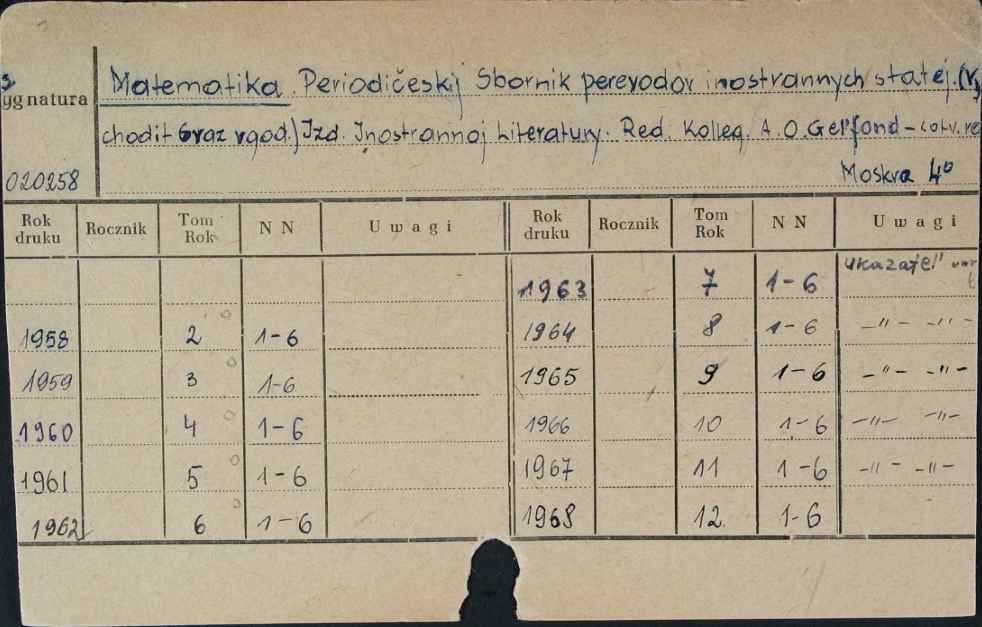 Matematika. Periodičeskij Sbornik perevodov inostrannych statej. (Vy
Sygnatura
chodit 6 raz v god.) Izd. Inostrannoj Literatury. Red. Kolleg. A. O. Gel'fond - (otv. re
020258
Moskva 4°
Rok druku Rocznik Tom Rok NN Uwagi Rok druku Rocznik Tom Rok NN Uwagi
1963 7 1-6 ukazatel'
1958 2 1-6 1964 8 1-6 -"- -"-
1959 3 1-6 1965 9 1-6 -"- -"-
1960 4 1-6 1966 10 1-6 -"- -"-
1961 5 1-6 1967 11 1-6 -"- -"-
1962 6 1-6 1968 12. 1-6